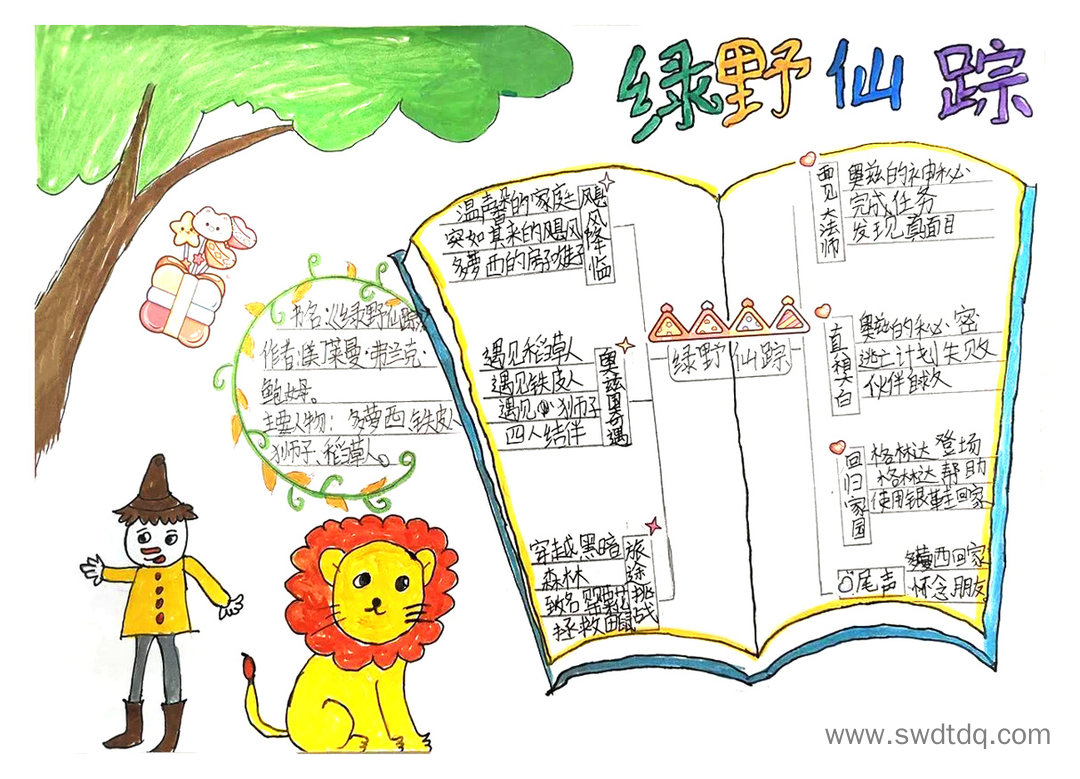 绿野仙踪
书名:《绿野仙踪》
作者:[美]莱曼·弗兰克·
鲍姆。
主要人物:多萝西、铁皮人
狮子、稻草人。
绿野仙踪
飓风降临
温馨的家庭
突如其来的飓风
多萝西的房子
奥兹国奇遇
遇见稻草人
遇见铁皮人
遇见小狮子
四人结伴
旅途挑战
穿越黑暗
森林
致命罂粟花
拯救田鼠
面见大法师
奥兹的神秘
完成任务
发现真面目
真相大白
奥兹的秘密
逃亡计划失败
伙伴自救
回归家园
格林达登场
格林达帮助
使用银鞋回家
尾声
多萝西回家
怀念朋友。
www.swdtdq.com